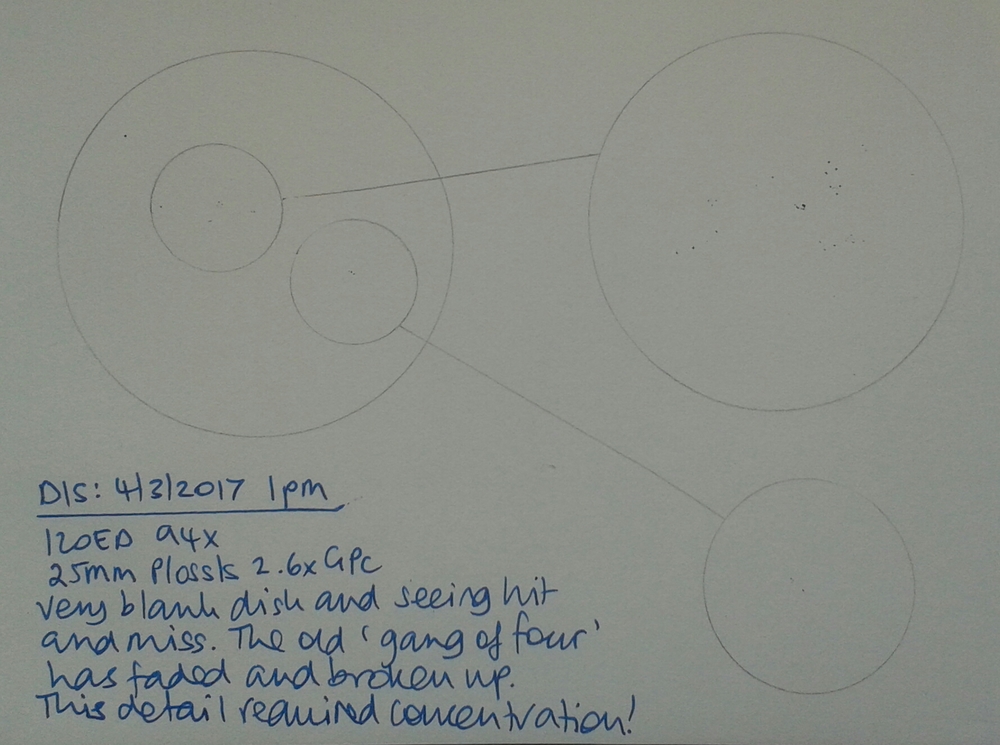 D/S: 4/3/2017 1pm
120ED 94x
25mm Plossls 2.6x GPC
very blank disk and seeing hit
and miss. The old 'gang of four'
has faded and broken up.
This detail required concentration!